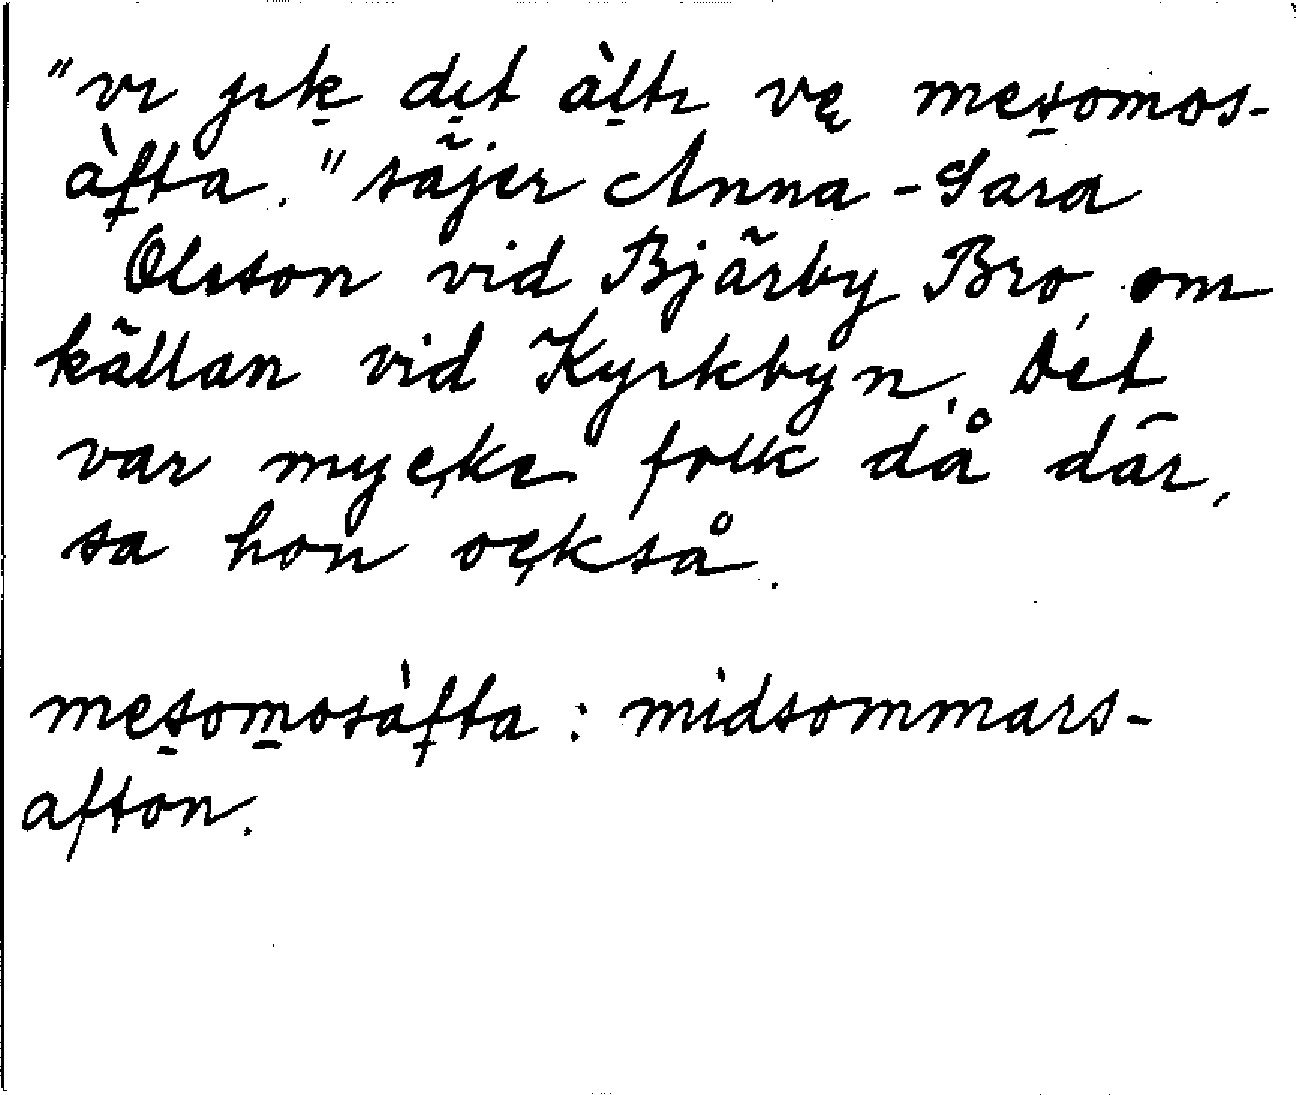 "vı jık det àltı vę mesomos-
àfta." säjer Anna-Sara
Olsson vid Bjärby Bro, om
källan vid Kyrkbyn. Det
var mycke folk då där,
sa hon också.
mesomosàfta : midsommars-
afton.